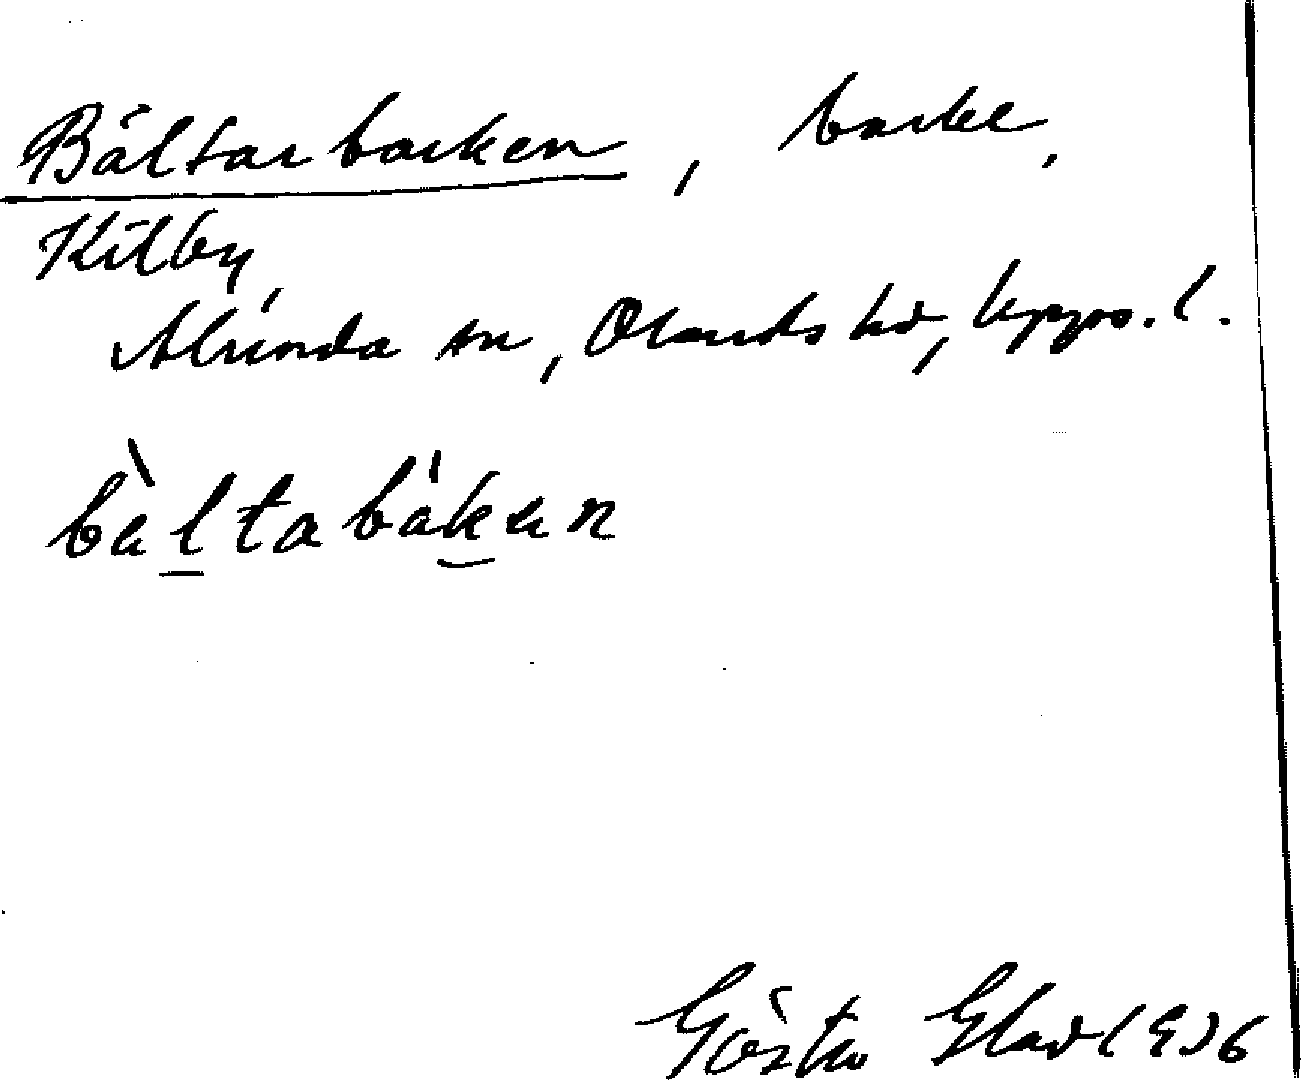 Bältarbacken, backe,
Kilby,
Alunda sn, Olands hd, Upps. l.
bältabakan
Gösta Glad 1936